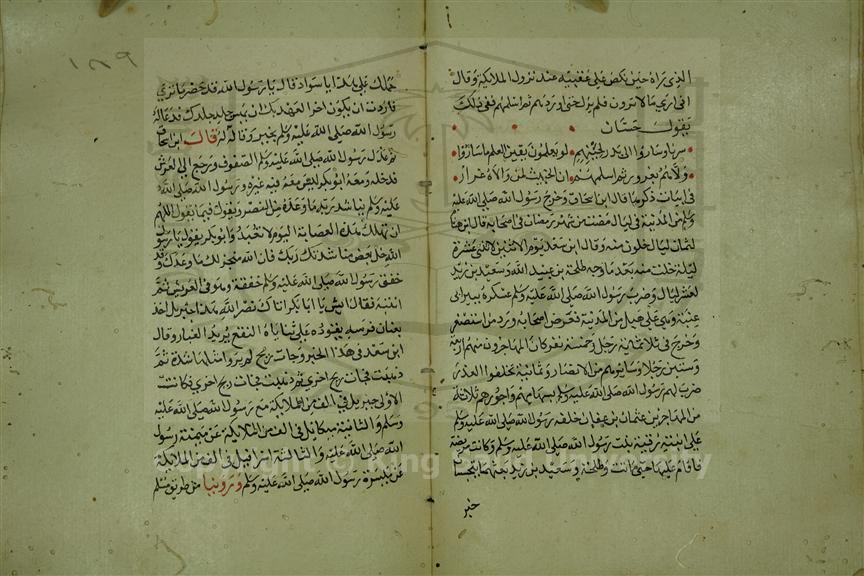 الذى يراه حين نكص على عقبيه عند نزول الملائكة وقال
انى ارى مالا ترون فلم يزل حتى اوردهم ثم اسلمهم ففى ذلك
يقول حسان
سرنا وساروا الى بدر لحينهم لو يعلمون يقين العلم ما ساروا
دلاهم بغرور ثم اسلمهم ان الخبيث لمن والاه غرار
فى ابيات ذكرها قال ابن اسحاق وخرج رسول الله صلى الله عليه
وسلم من المدينة فى ليال مضت من شهر رمضان فى اصحابه قال ابن هشام
لثمان ليال خلون منه وقال ابن سعد يوم الاثنين لاثنتى عشرة
ليلة خلت منه بعد ما وجه طلحة بن عبيد الله وسعيد بن زيد
بعشر ليال وضرب رسول الله صلى الله عليه وسلم عسكره ببير ابى
عنبة وهى على ميل من المدينة فعرض اصحابه ورد من استصغر
وخرج فى ثلاثمائة رجل وخمسة نفر كان المهاجرون منهم اربعة
وستين رجلا وسايرهم من الانصار وثمانية تخلفوا لعذر
ضرب لهم رسول الله صلى الله عليه وسلم بسهامهم واجورهم ثلاثة
من المهاجرين عثمان بن عفان خلفه رسول الله صلى الله عليه وسلم
على ابنته رقية بنت رسول الله صلى الله عليه وسلم وكانت مريضة
فاقام عليها حتى ماتت وطلحة وسعيد بن زيد بعثهما يتحسسان
خبر
١٨٩
حملك على هذا يا سواد قال يا رسول الله قد حضر ما ترى
فاردت ان يكون اخر العهد بك ان يمس جلدى جلدك فدعا له
رسول الله صلى الله عليه وسلم بخير وقاله له قال ابن اسحاق
ثم عدل رسول الله صلى الله عليه وسلم الصفوف ورجع الى العرش
فدخله ومعه ابو بكر ليس معه فيه غيره ورسول الله صلى الله
عليه وسلم يناشد ربه ما وعده من النصر ويقول فيما يقول اللهم
ان تهلك هذه العصابة اليوم لا تعبد وابو بكر يقول يا رسول
الله خل بعض مناشدتك ربك فان الله منجز لك ما وعدك وقد
خفق رسول الله صلى الله عليه وسلم خفقة وهو فى العريش ثم
انتبه فقال ابشر يا ابا بكر اتاك نصر الله هذا جبريل اخذ
بعنان فرسه يقوده على ثناياه النقع يريد الغبار وقال
ابن سعد فى هذا الخبر وجات ريح لم يروا مثلها شدة ثم
ذهبت فجات ريح اخرى ثم ذهبت فجات ريح اخرى فكانت
الاولى جبريل فى الف من الملايكة مع رسول الله صلى الله عليه
وسلم والثانية ميكائيل فى الف من الملايكة عن ميمنة رسول
الله صلى الله عليه والثالثة اسرافيل فى الف من الملائكة
عن ميسرة رسول الله صلى الله عليه وسلم وروينا من طريق مسلم
Copyright © King Saud University